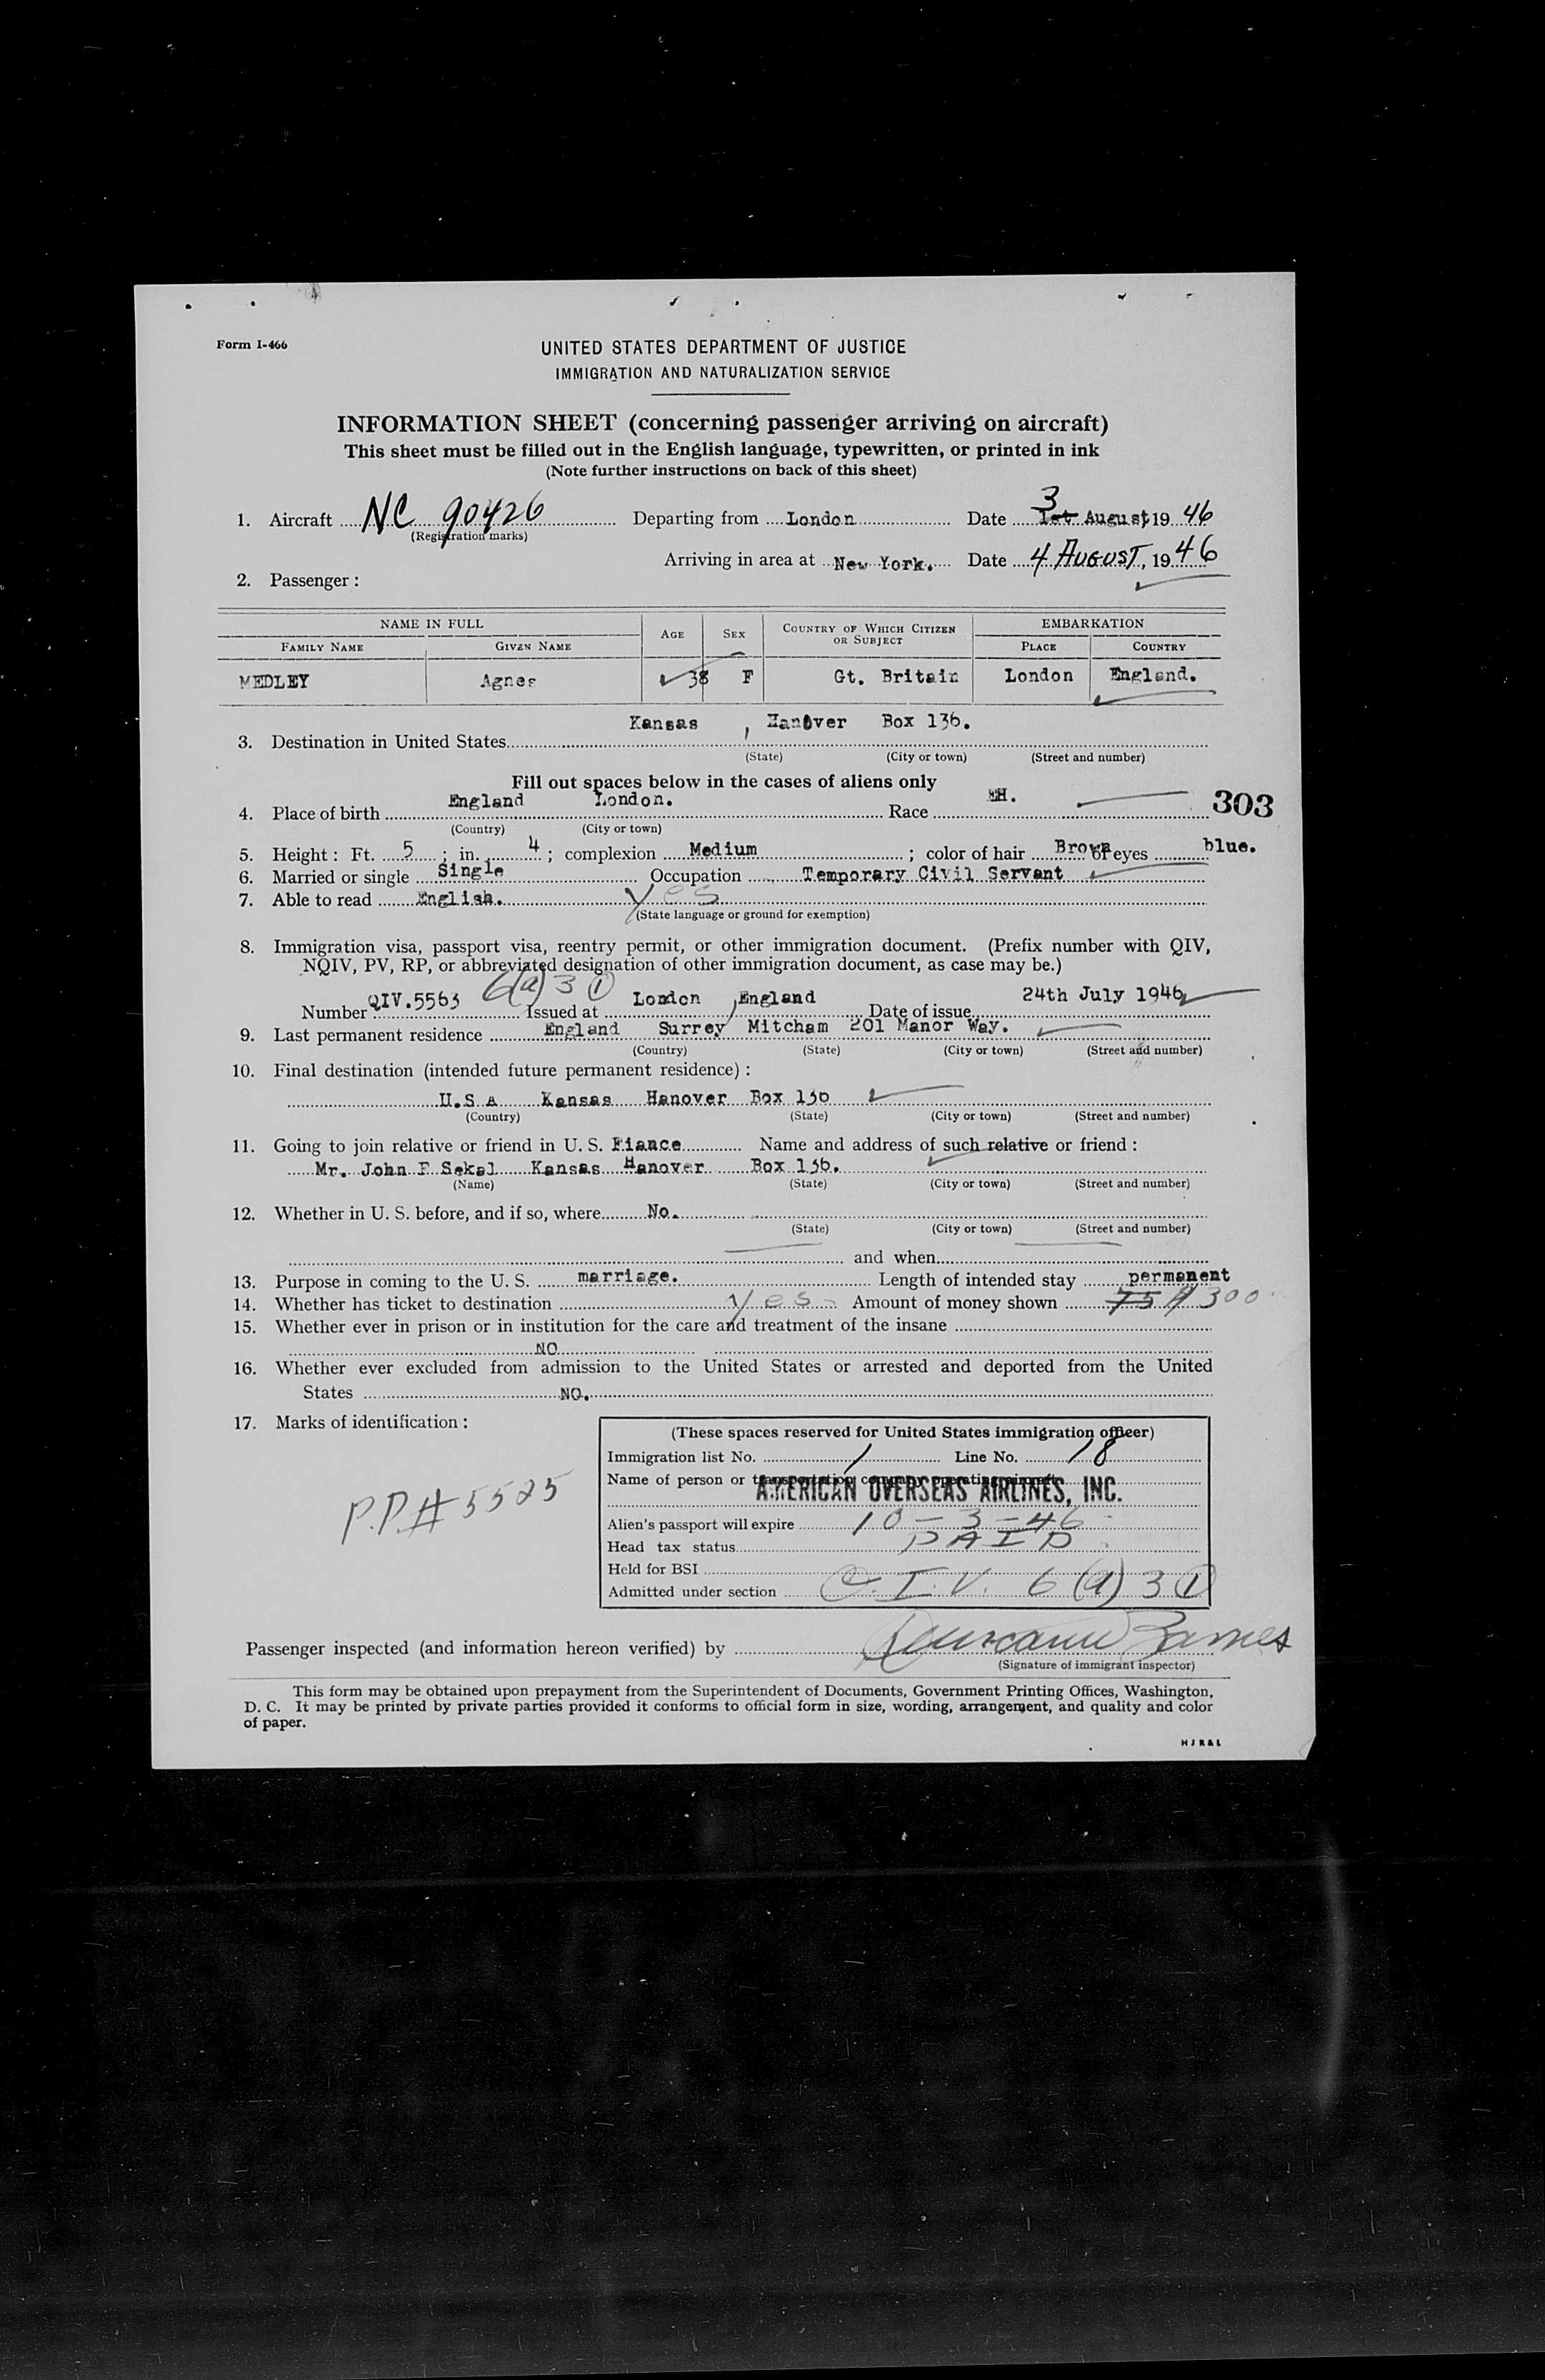 Form I-466
UNITED STATES DEPARTMENT OF JUSTICE
IMMIGRATION AND NATURALIZATION SERVICE
INFORMATION SHEET (concerning passenger arriving on aircraft)
This sheet must be filled out in the English language, typewritten, or printed in ink
(Note further instructions on back of this sheet)
1. Aircraft NC 90426 Departing from London Date 3 1st August, 19 46
(Registration marks)
Arriving in area at New York. Date 4 AUGUST, 19 46
2. Passenger:
NAME IN FULL AGE SEX COUNTRY OF WHICH CITIZEN OR SUBJECT EMBARKATION
FAMILY NAME GIVEN NAME PLACE COUNTRY
MEDLEY Agnes 38 F Gt. Britain London England.
Kansas, Hanover Box 136.
3. Destination in United States
(State) (City or town) (Street and number)
Fill out spaces below in the cases of aliens only
4. Place of birth England London. Race EH. 303
(Country) (City or town)
5. Height: Ft. 5; in. 4; complexion Medium; color of hair Brown of eyes blue.
6. Married or single Single Occupation Temporary Civil Servant
7. Able to read English. Yes
(State language or ground for exemption)
8. Immigration visa, passport visa, reentry permit, or other immigration document. (Prefix number with QIV,
NQIV, PV, RP, or abbreviated designation of other immigration document, as case may be.)
6(a) 3 (1)
Number QIV.5563 Issued at London, England Date of issue 24th July 1946
9. Last permanent residence England Surrey Mitcham 201 Manor Way.
(Country) (State) (City or town) (Street and number)
10. Final destination (intended future permanent residence):
U.S A Kansas Hanover Box 136
(Country) (State) (City or town) (Street and number)
11. Going to join relative or friend in U. S. Fiance Name and address of such relative or friend:
Mr. John F Sekal Kansas Hanover Box 136.
(Name) (State) (City or town) (Street and number)
12. Whether in U. S. before, and if so, where No.
(State) (City or town) (Street and number)
and when
13. Purpose in coming to the U. S. marriage. Length of intended stay permanent
14. Whether has ticket to destination Yes Amount of money shown 75 $300
15. Whether ever in prison or in institution for the care and treatment of the insane
NO
16. Whether ever excluded from admission to the United States or arrested and deported from the United
States NO.
17. Marks of identification:
P.P.# 5525
(These spaces reserved for United States immigration officer)
Immigration list No. 1 Line No. 18
Name of person or transportation company operating aircraft
AMERICAN OVERSEAS AIRLINES, INC.
Alien's passport will expire 10-3-46
Head tax status PAID
Held for BSI
Admitted under section Q.I.V. 6(a) 3 (1)
Passenger inspected (and information hereon verified) by
(Signature of immigrant inspector)
This form may be obtained upon prepayment from the Superintendent of Documents, Government Printing Offices, Washington,
D. C. It may be printed by private parties provided it conforms to official form in size, wording, arrangement, and quality and color
of paper.
H J R & L